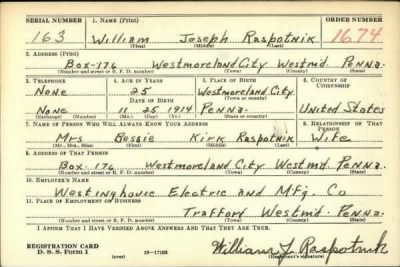 SERIAL NUMBER 1. NAME (Print) ORDER NUMBER
163 William Joseph Raspotnik 1674
(First) (Middle) (Last)
2. ADDRESS (Print)
Box-176 Westmoreland City Westm'd. Penna.
(Number and street or R. F. D. number) (Town) (County) (State)
3. TELEPHONE 4. AGE IN YEARS 5. PLACE OF BIRTH 6. COUNTRY OF CITIZENSHIP
None 25 Westmoreland City
DATE OF BIRTH (Town or county)
None 11 25 1914 Penna. United States
(Exchange) (Number) (Mo.) (Day) (Yr.) (State or country)
7. NAME OF PERSON WHO WILL ALWAYS KNOW YOUR ADDRESS 8. RELATIONSHIP OF THAT PERSON
Mrs Bessie Kirk Raspotnik Wife
(Mr., Mrs., Miss) (First) (Middle) (Last)
9. ADDRESS OF THAT PERSON
Box-176 Westmoreland City Westm'd. Penna.
(Number and street or R. F. D. number) (Town) (County) (State)
10. EMPLOYER'S NAME
Westinghouse Electric and Mfg. Co
11. PLACE OF EMPLOYMENT OR BUSINESS
Trafford Westm'd. Penna.
(Number and street or R. F. D. number) (Town) (County) (State)
I AFFIRM THAT I HAVE VERIFIED ABOVE ANSWERS AND THAT THEY ARE TRUE.
REGISTRATION CARD
D. S. S. Form 1 (over) 16—17105 William J. Raspotnik
(Registrant's signature)